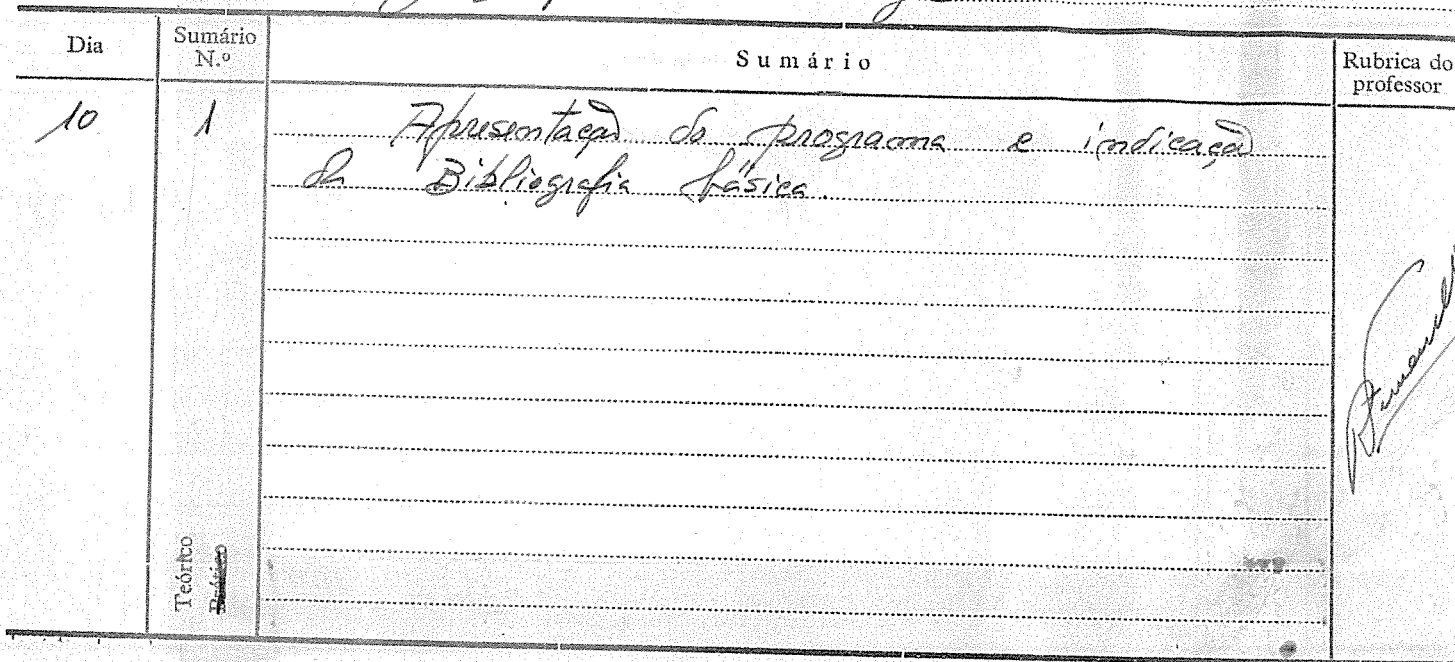 Dia Sumário N.º Sumário Rubrica do professor
10 1 Apresentação do programa e indicação
da Bibliografia básica.
Teórico
Prático